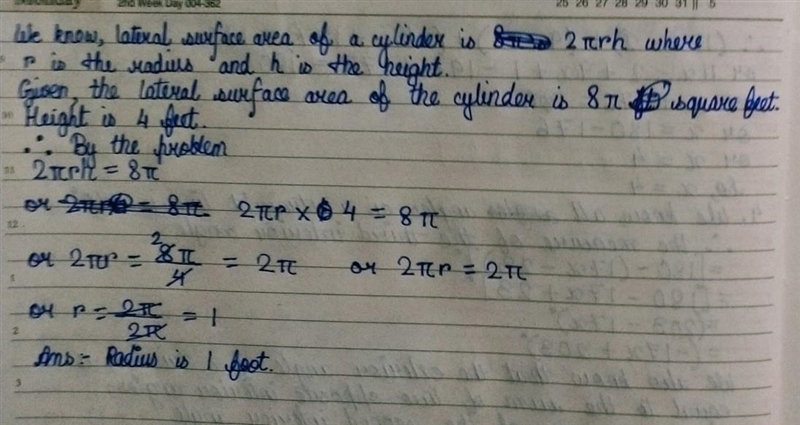 2nd Week Day 004-362
25 26 27 28 29 30 31 || 5
We know, lateral surface area of a cylinder is 2πrh where
r is the radius and h is the height.
Given, the lateral surface area of the cylinder is 8π square feet.
Height is 4 feet.
∴ By the problem
2πrh = 8π
or 2πr × 4 = 8π
or 2πr = 8π/4 = 2π or 2πr = 2π
or r = 2π/2π = 1
Ans:- Radius is 1 foot.